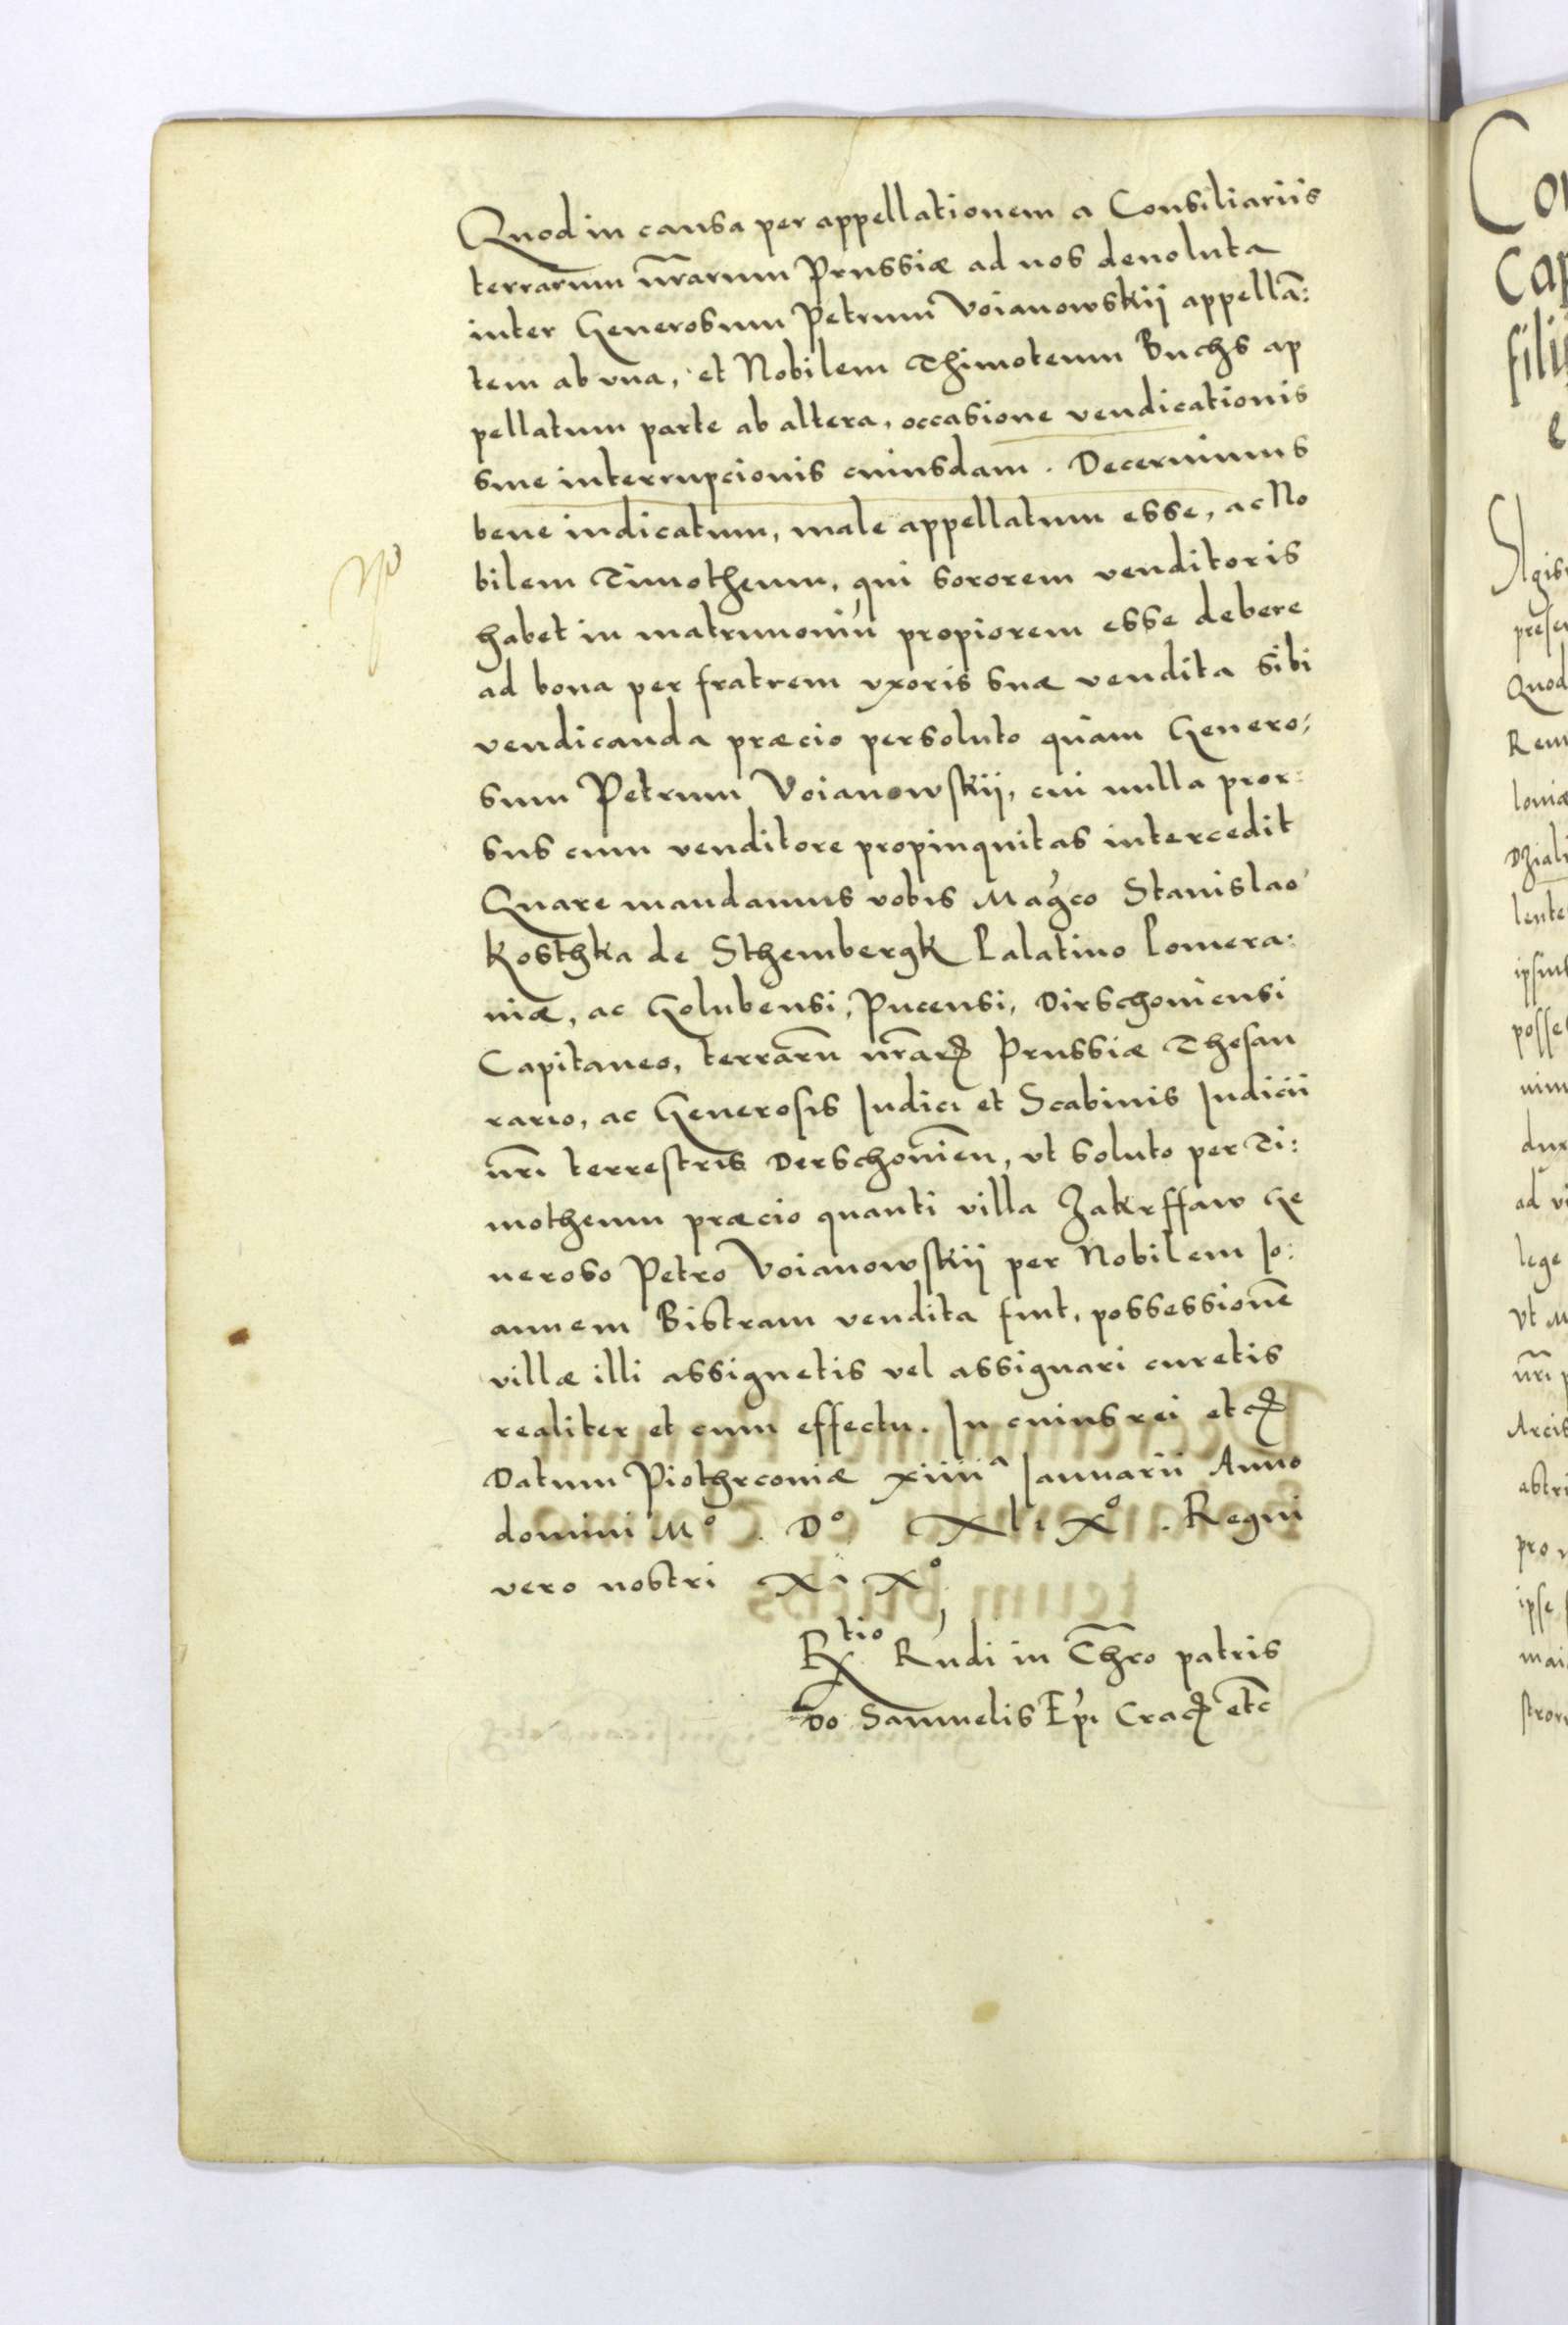 Quod in causa per appellationem a Consiliariis
terrarum nr̃arum Prussiæ ad nos devoluta
inter Generosum Petrum Voianowskij appellã:
tem ab una, et Nobilem Thimoteum Buchs ap
pellatum parte ab altera, occasione vendicationis
sive interrupcionis cuiusdam. Decernimus
bene iudicatum, male appellatum esse, ac No
bilem Timotheum, qui sororem venditoris
habet in matrimoniũ propiorem esse debere
ad bona per fratrem uxoris suæ vendita sibi
vendicanda præcio persoluto quàm Genero:
sum Petrum Voianowskij, cui nulla pror:
sus cum venditore propinquitas intercedit
Quare mandamus vobis Mag̃co Stanislao
Kosthka de Sthembergk Palatino Pomera:
niæ, ac Golubensi, Pucensi, Dirschoviensi
Capitaneo, terrarũ nr̃arꝝ Prussiæ Thesau
rario, ac Generosis Iudici et Scabinis Iudicii
nr̃i terrestris Derschovieñ, ut soluto per Ti:
motheum præcio quanti villa Zakrffaw Ge
neroso Petro Voianowskij per Nobilem Io:
annem Bistram vendita fuit, possessionẽ
villæ illi assignetis vel assignari curetis
realiter et cum effectu. In cuius rei etcꝝ
Datum Piothrconiæ xiiiiᵃ Ianuarii Anno
domini Mº. Dº XLiXº. Regni
vero nostri XiXº.
Rᵗⁱᵒ R̃ndi in Chr̃o patris
Do Samuelis Ep̃i Cracꝝ etc̃
Con
Cap
fili
e
Sigis
presen
Quod
Rem
loniæ
Dziali
lente
ipsius
posse
ad vi
lege
ut M
nr̃i p
Arcis
abstri
pro
ipse
mai
stror